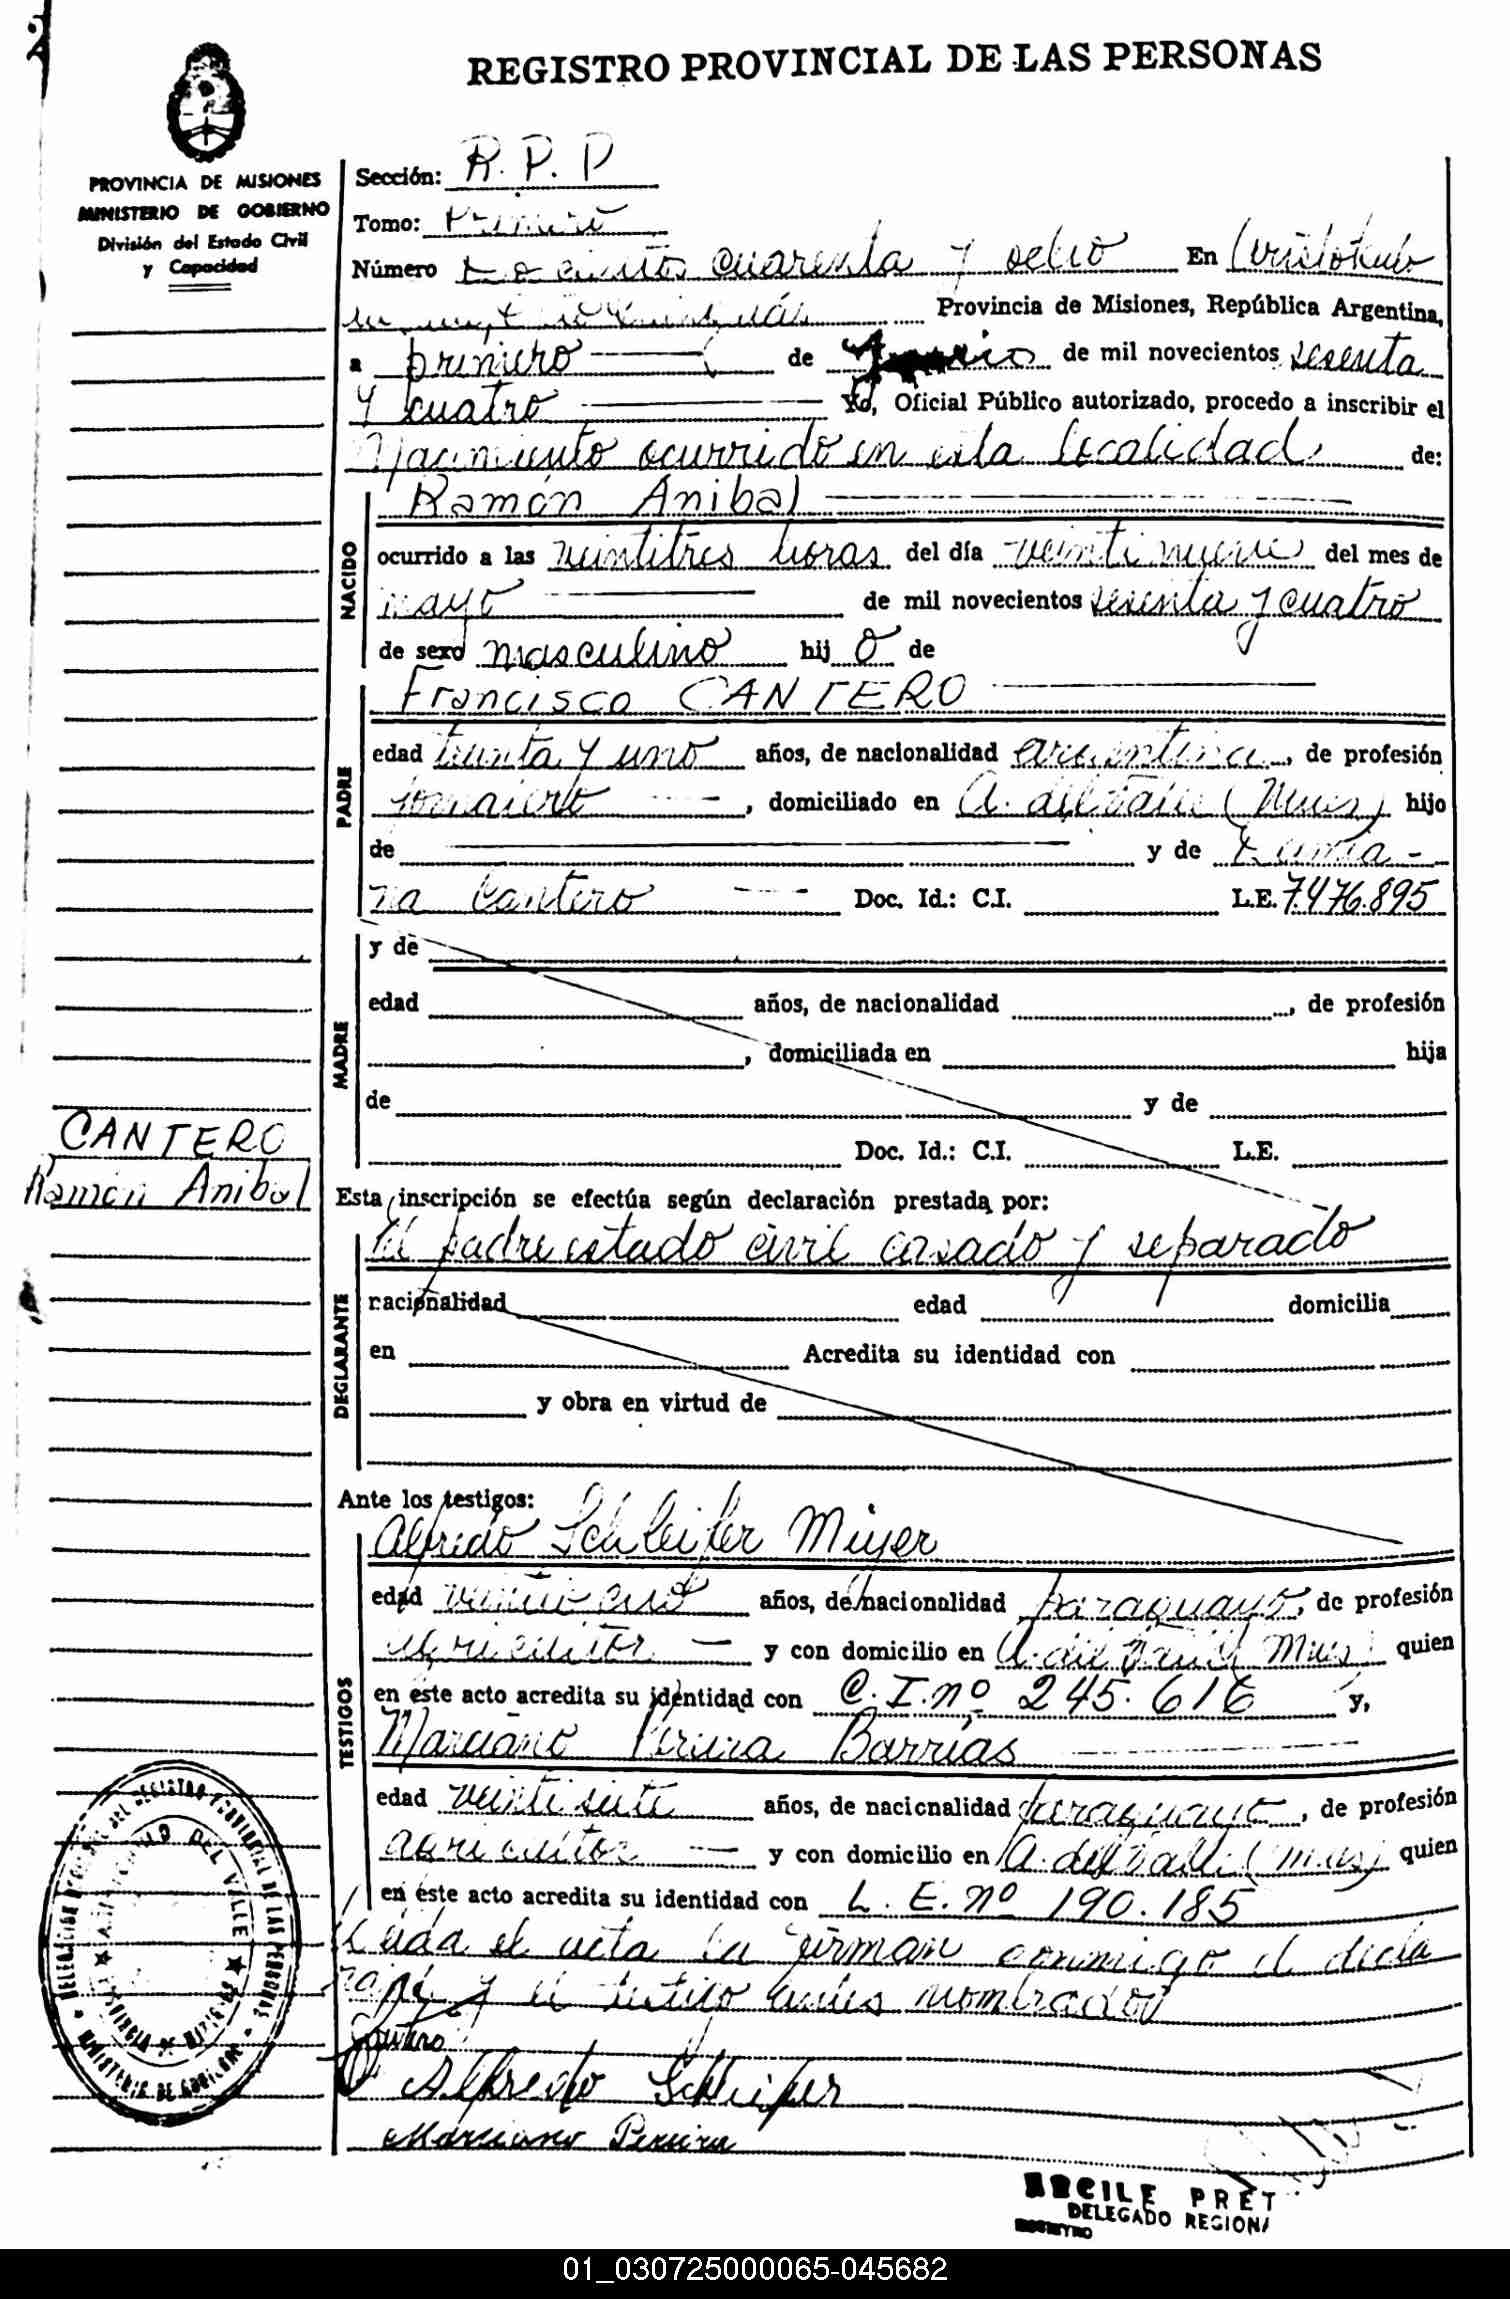 REGISTRO PROVINCIAL DE LAS PERSONAS
PROVINCIA DE MISIONES
MINISTERIO DE GOBIERNO
División del Estado Civil
y Capacidad
Sección: R. P. P
Tomo: Primero
Número cuarenta y ocho En
Provincia de Misiones, República Argentina,
a primero de de mil novecientos sesenta
y cuatro Yo, Oficial Público autorizado, procedo a inscribir el
Nacimiento ocurrido en esta localidad de:
NACIDO
Ramón Anibal
ocurrido a las veintitres horas del día veintinueve del mes de
mayo de mil novecientos sesenta y cuatro
de sexo masculino hij o de
PADRE
Francisco CANTERO
edad treinta y uno años, de nacionalidad argentina, de profesión
jornalero, domiciliado en A. del Valle (Mnes) hijo
de y de
na Cantero Doc. Id.: C.I. L.E. 7.476.895
MADRE
y de
edad años, de nacionalidad , de profesión
, domiciliada en hija
de y de
Doc. Id.: C.I. L.E.
CANTERO
Ramón Anibal
Esta inscripción se efectúa según declaración prestada por:
DECLARANTE
El padre estado civil casado y separado
nacionalidad edad domicilia
en Acredita su identidad con
y obra en virtud de
Ante los testigos:
TESTIGOS
Alfredo Schleifer Miyer
edad años, de nacionalidad paraguayo, de profesión
agricultor y con domicilio en A. del Valle (Mnes) quien
en este acto acredita su identidad con C. I. nº 245.616 y,
Marciano Pereira Barrias
edad veintisiete años, de nacionalidad paraguayo, de profesión
agricultor y con domicilio en A. del Valle (Mnes) quien
en este acto acredita su identidad con L. E. nº 190.185
Leida el acta la firman conmigo el decla
rante y el testigo antes nombrados
Cantero
Alfredo Schleifer
Marciano Pereira
ARISTOBULO DEL VALLE
PROVINCIA DE MISIONES
MINISTERIO DE GOBIERNO
PRET
DELEGADO REGIONA
01_030725000065-045682